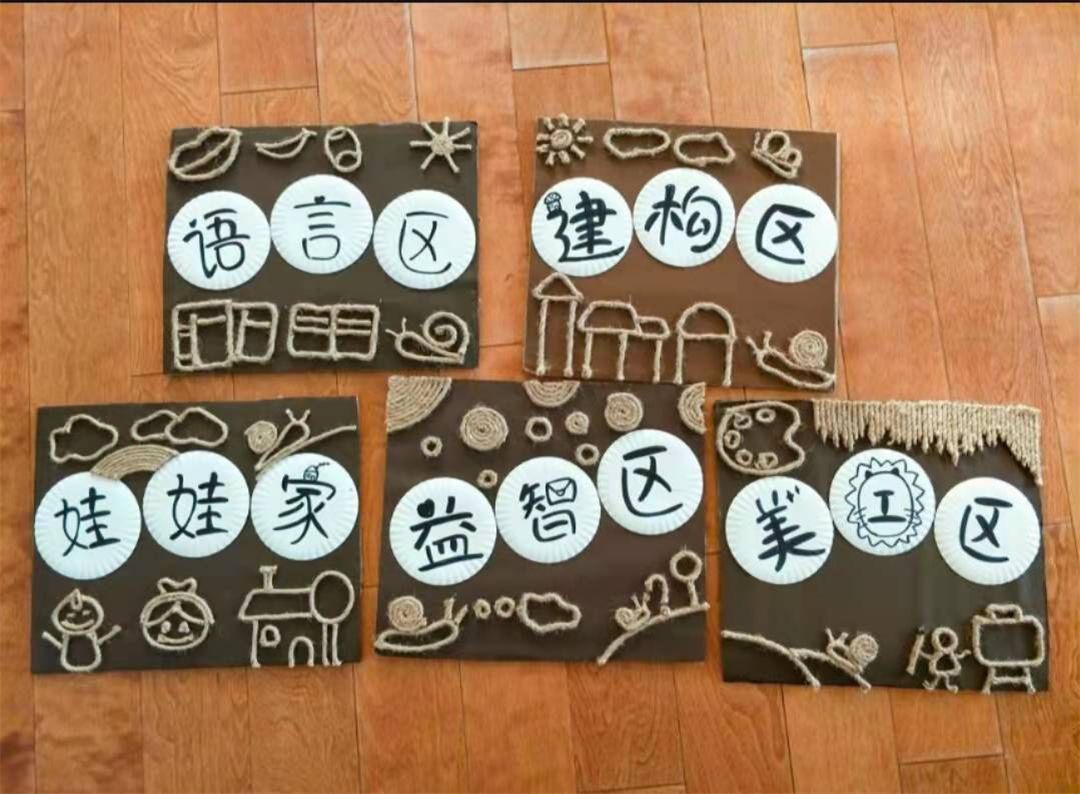 语言区
建构区
娃娃家
益智区
美工区